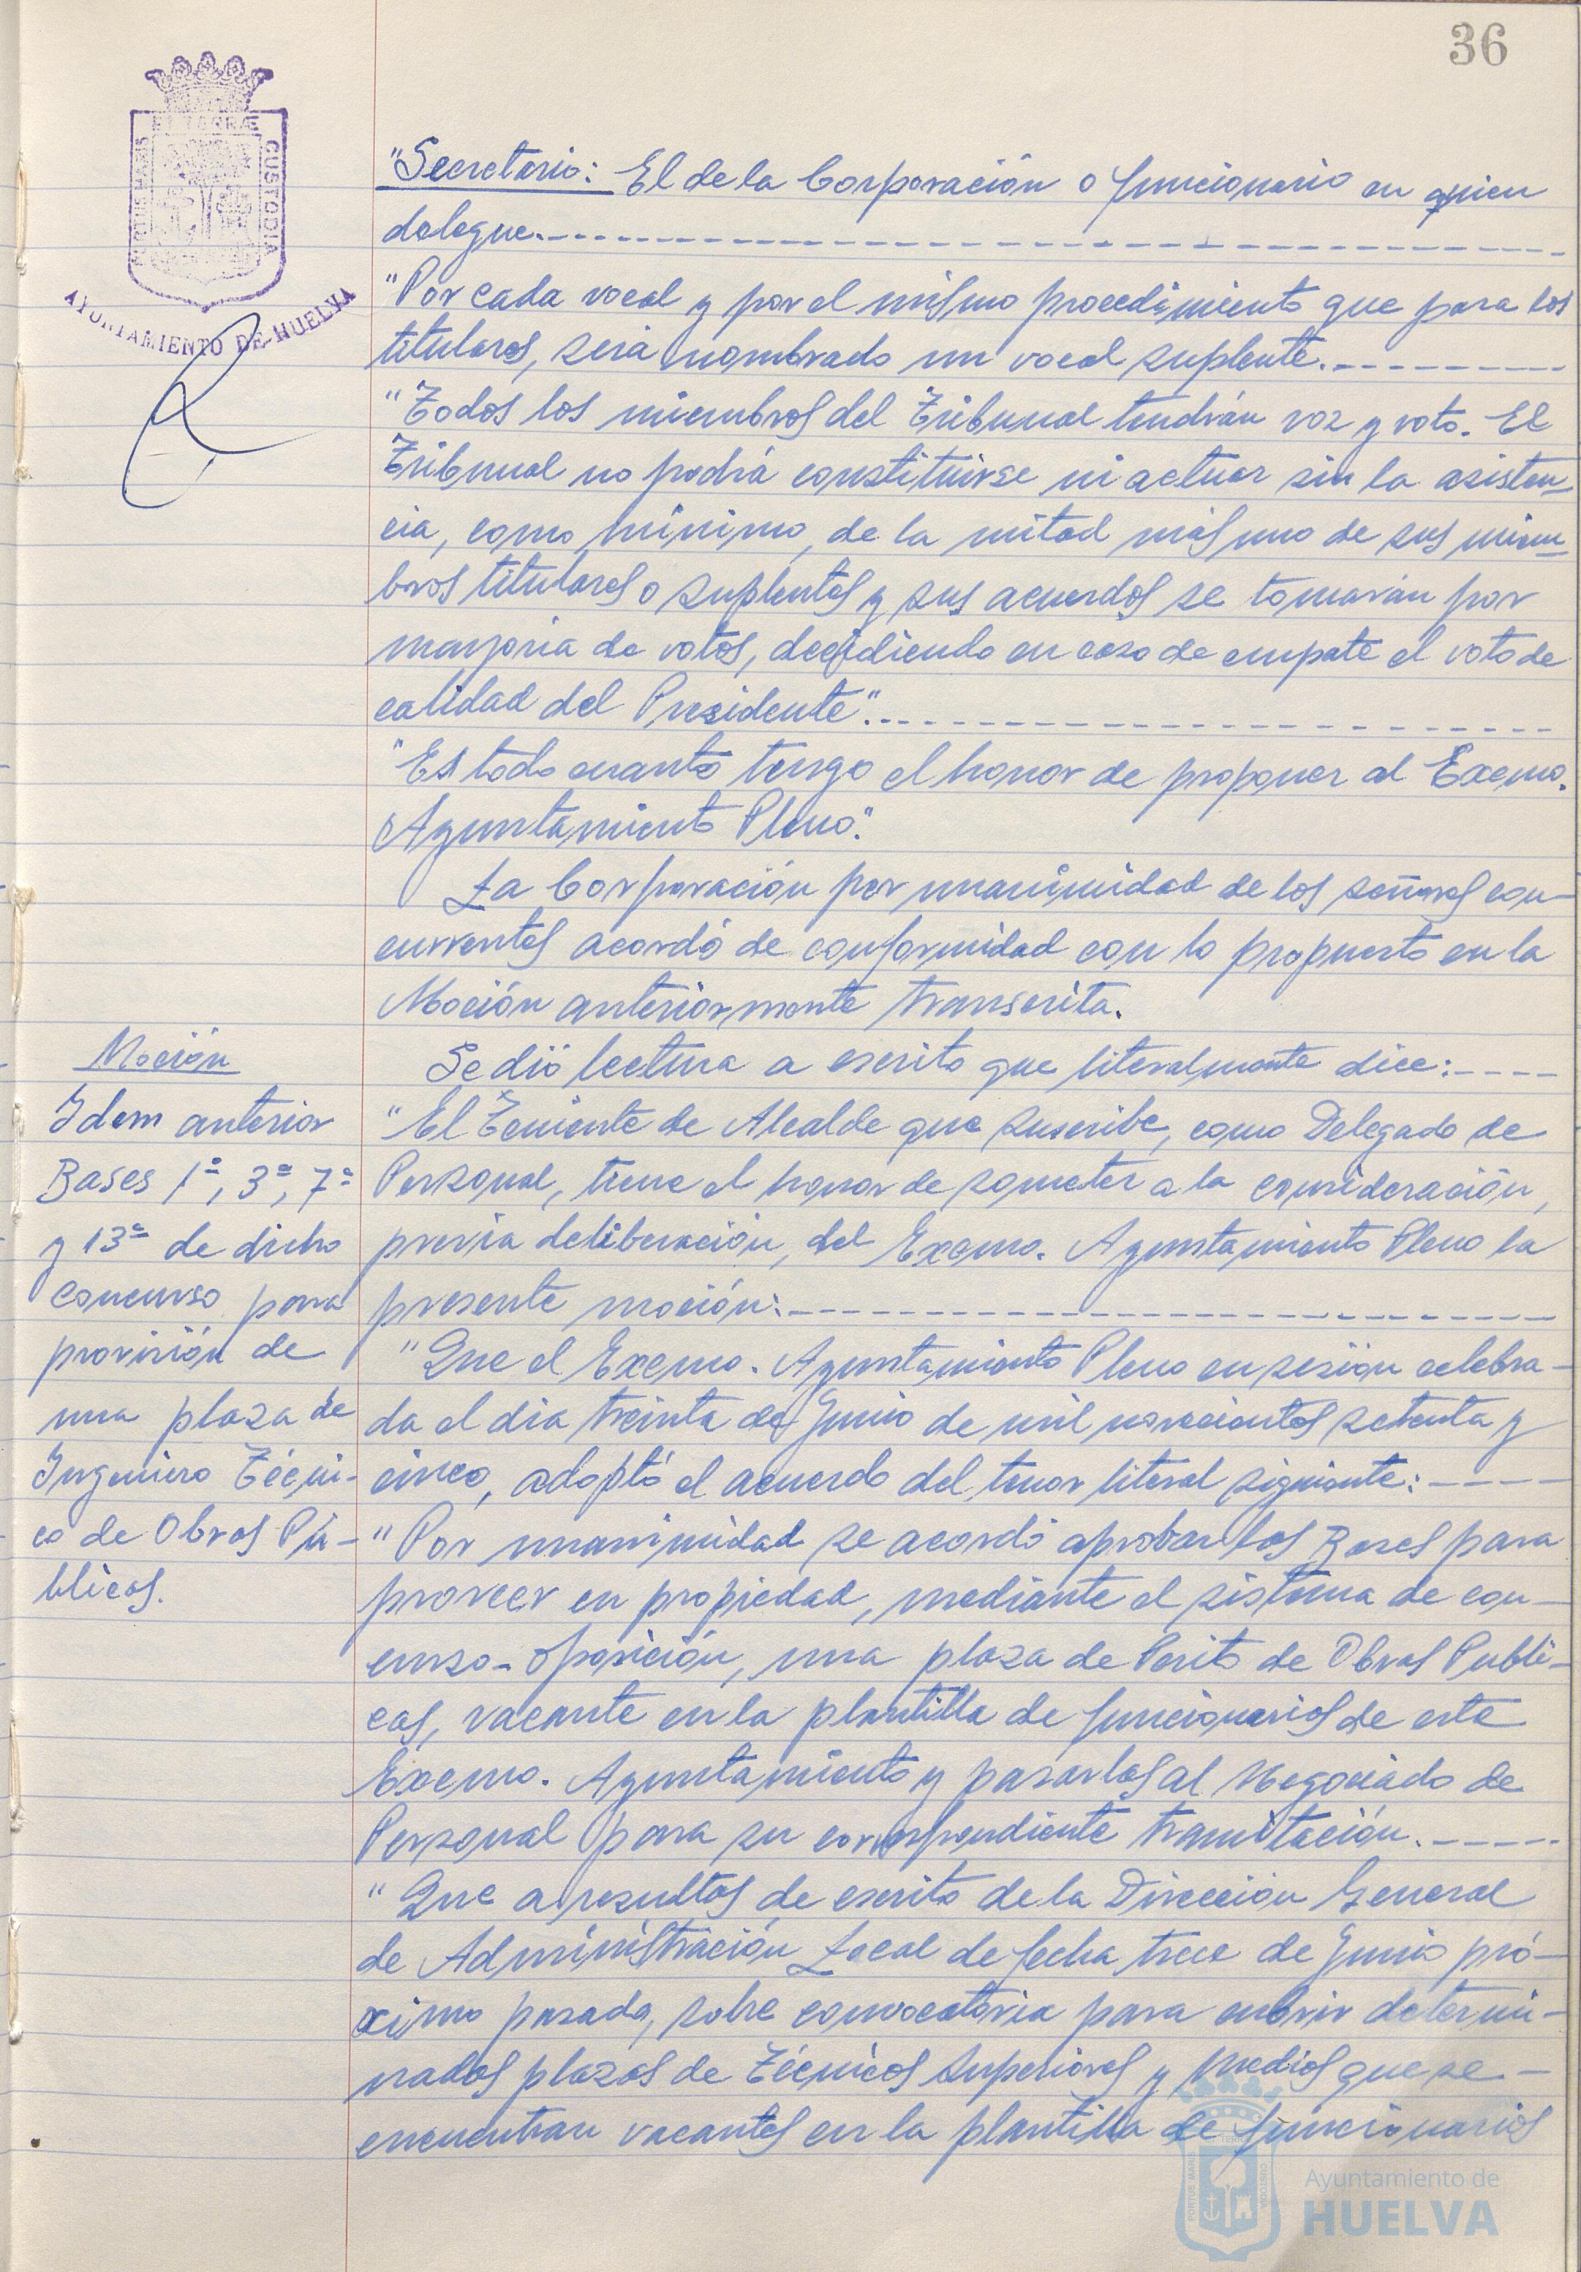 36
ET TERRÆ
PORTUS MARIS
CUSTODIA
AYUNTAMIENTO DE HUELVA
"Secretario: El de la Corporación o funcionario en quien
delegue.
"Por cada vocal y por el mismo procedimiento que para los
titulares, será nombrado un vocal suplente.
"Todos los miembros del Tribunal tendrán voz y voto. El
Tribunal no podrá constituirse ni actuar sin la asisten-
cia, como mínimo, de la mitad más uno de sus miem-
bros titulares o suplentes y sus acuerdos se tomarán por
mayoría de votos, decidiendo en caso de empate el voto de
calidad del Presidente".
"Es todo cuanto tengo el honor de proponer al Excmo.
Ayuntamiento Pleno".
La Corporación por unanimidad de los señores con-
currentes acordó de conformidad con lo propuesto en la
Moción anteriormente transcrita.
Moción
Idem anterior
Bases 1ª, 3ª, 7ª
y 13ª de dicho
concurso para
provisión de
una plaza de
Ingeniero Técni-
co de Obras Pú-
blicas.
Se dió lectura a escrito que literalmente dice:
"El Teniente de Alcalde que suscribe, como Delegado de
Personal, tiene el honor de someter a la consideración,
previa deliberación, del Excmo. Ayuntamiento Pleno la
presente moción:
"Que el Excmo. Ayuntamiento Pleno en sesión celebra-
da el día treinta de Junio de mil novecientos setenta y
cinco, adoptó el acuerdo del tenor literal siguiente:
"Por unanimidad se acordó aprobar las Bases para
proveer en propiedad, mediante el sistema de con-
curso-oposición, una plaza de Perito de Obras Públi-
cas, vacante en la plantilla de funcionarios de este
Excmo. Ayuntamiento y pasarlas al Negociado de
Personal para su correspondiente tramitación.
"Que a resultas de escrito de la Dirección General
de Administración Local de fecha trece de Junio pró-
ximo pasado, sobre convocatoria para cubrir determi-
nadas plazas de Técnicos Superiores y Medios que se
encuentran vacantes en la plantilla de funcionarios
Ayuntamiento de
HUELVA